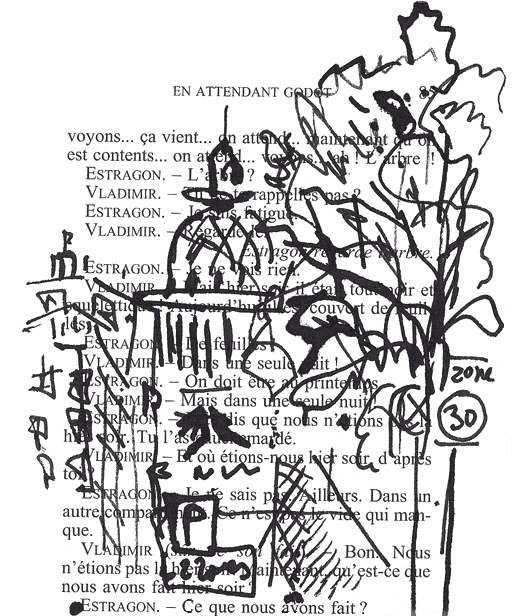 EN ATTENDANT GODOT 85
voyons... ça vient... on attend... maintenant qu'on
est contents... on attend... voyons... ah ! L'arbre !
ESTRAGON. – L'arbre ?
VLADIMIR. – te rappelles pas ?
ESTRAGON. – Je suis fatigué.
VLADIMIR. – Regarde-le.
Estragon regarde l'arbre.
ESTRAGON. – Je ne vois rien.
VLADIMIR. – hier soir il était tout noir et
squelettique ! Aujourd'hui couvert de feuil-
les.
ESTRAGON. – De feuilles !
VLADIMIR. – Dans une seule nuit !
ESTRAGON. – On doit être au printemps.
VLADIMIR. – Mais dans une seule nuit !
ESTRAGON. – dis que nous n'étions pas là
hier soir. Tu l'as cauchemardé.
VLADIMIR. – Et où étions-nous hier soir, d'après
toi ?
ESTRAGON. – Je ne sais pas. Ailleurs. Dans un
autre compartiment. Ce n'est pas le vide qui man-
que.
VLADIMIR – Bon. Nous
n'étions pas là hier soir. Maintenant, qu'est-ce que
nous avons fait hier soir ?
ESTRAGON. – Ce que nous avons fait ?
ZONE
30
P